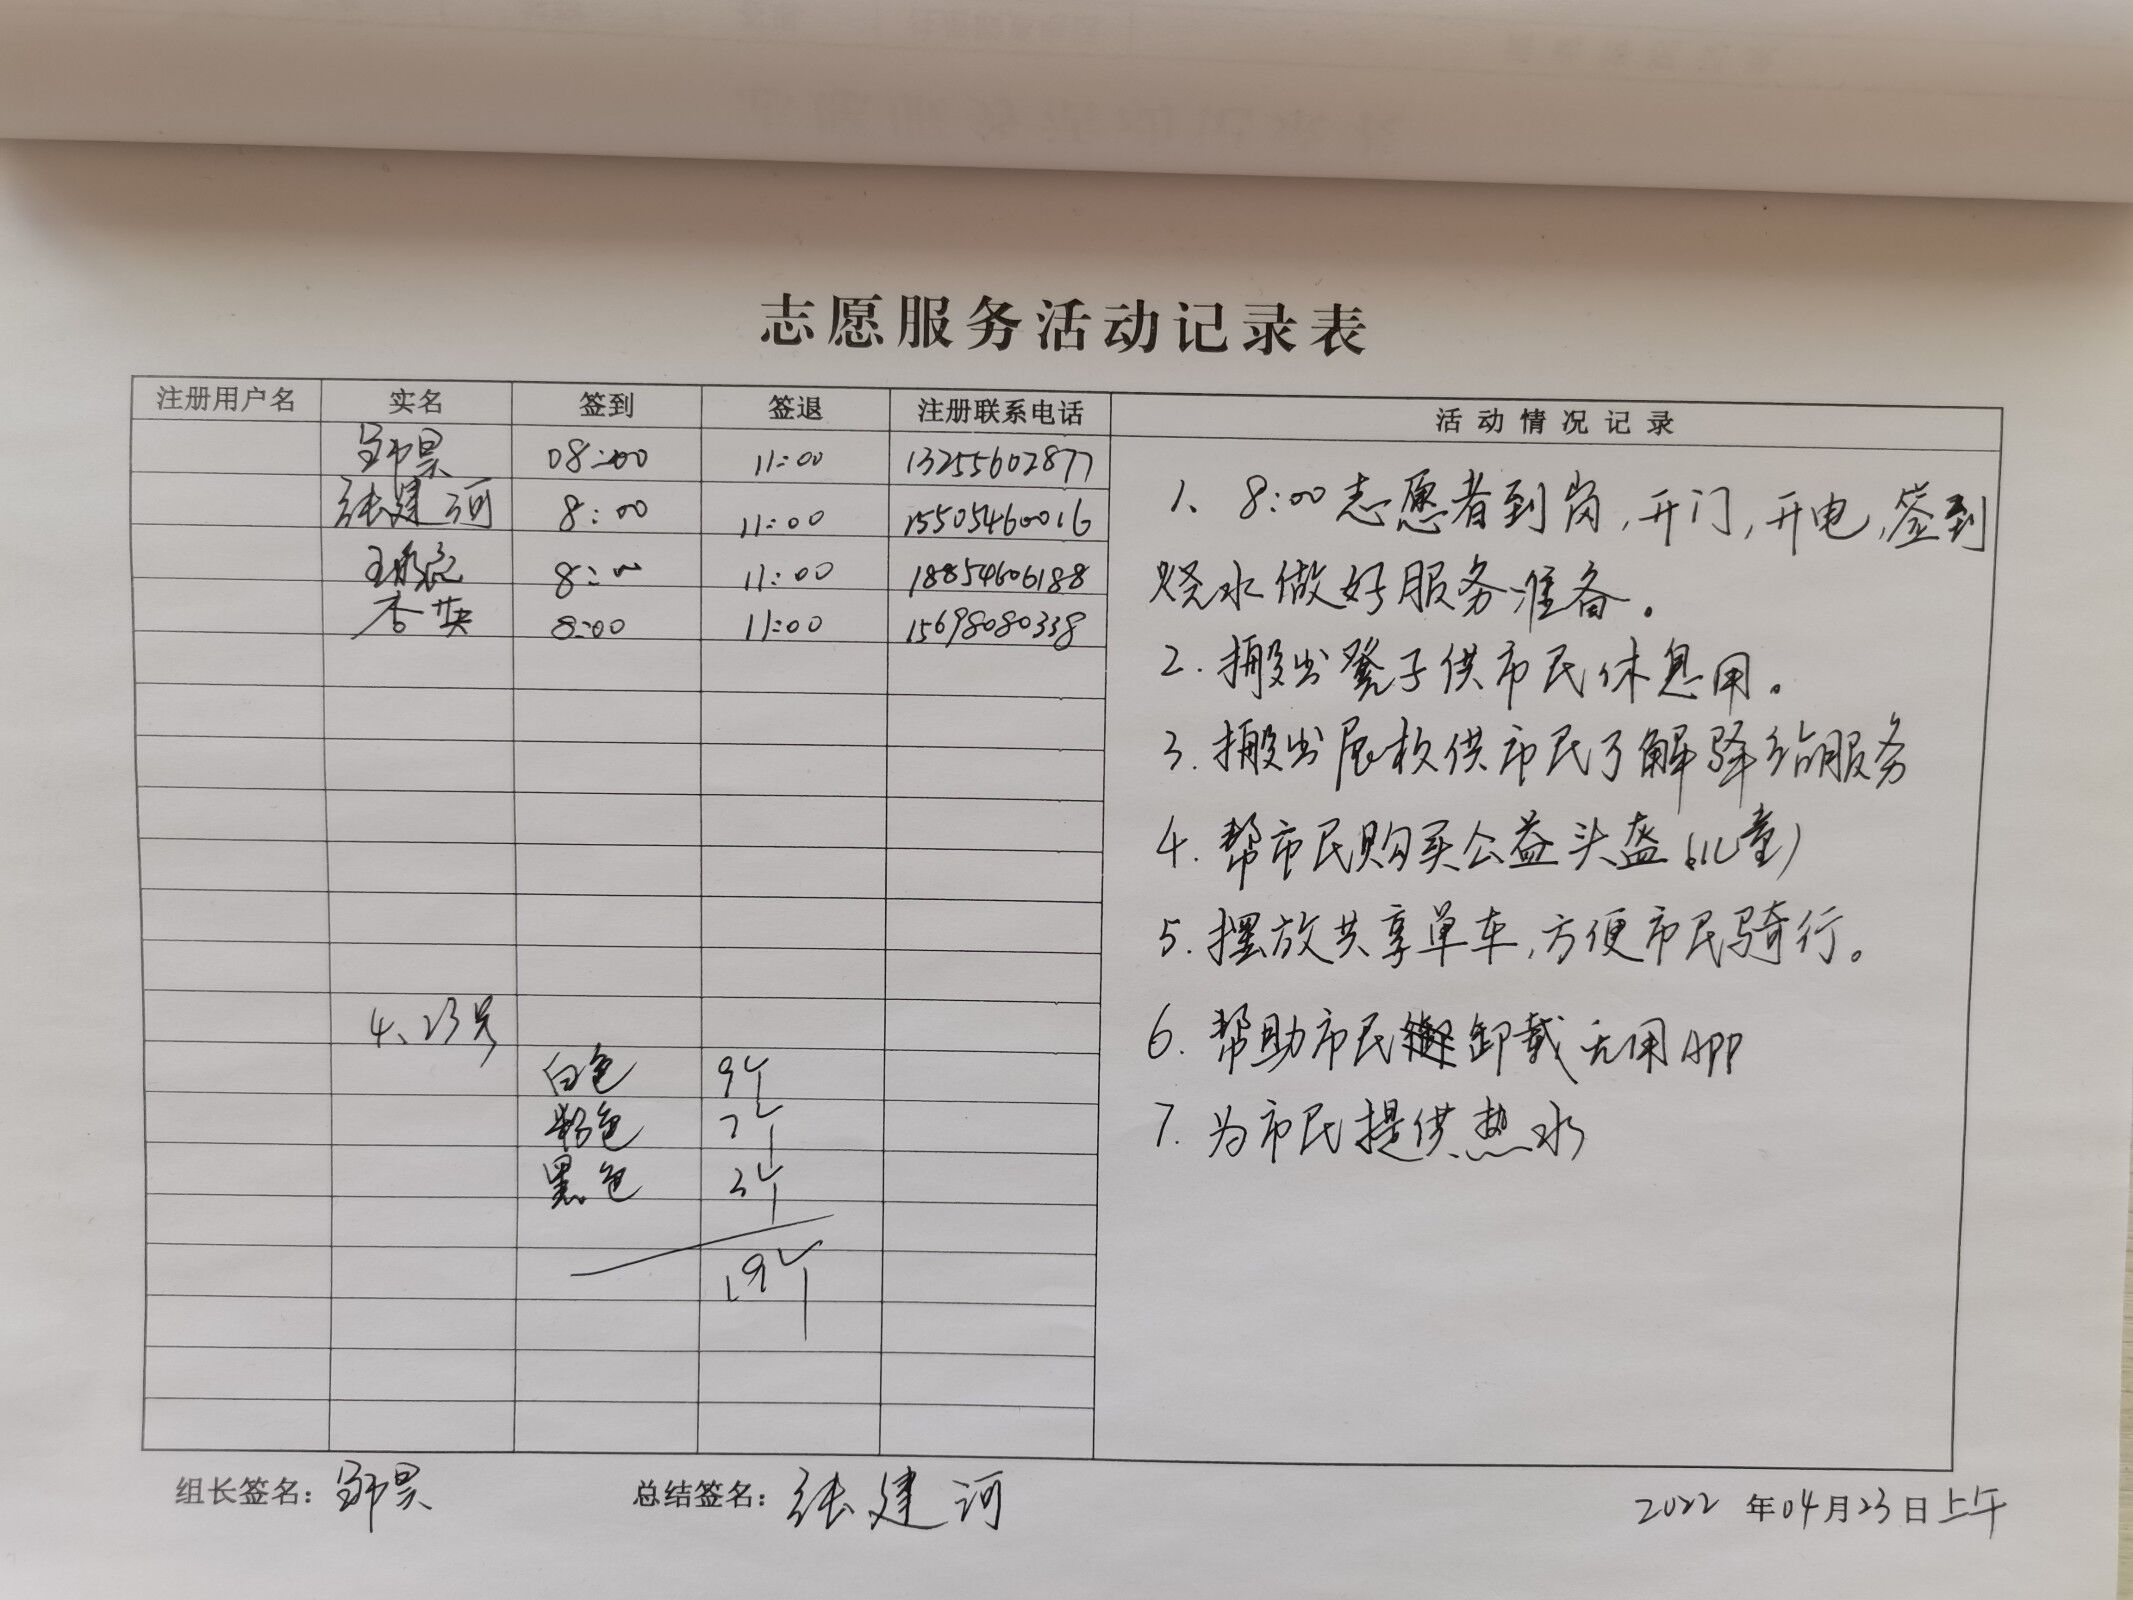 志愿服务活动记录表
注册用户名 实名 签到 签退 注册联系电话 活动情况记录
08:00 11:00 13255602877
张建河 8:00 11:00 15505460016
8:00 11:00 18854606188
8:00 11:00 15698080338
1、8:00志愿者到岗,开门,开电,签到
烧水做好服务准备。
2.搬出凳子供市民休息用。
3.搬出展板供市民了解驿站服务
4.帮市民购买公益头盔(儿童)
5.摆放共享单车,方便市民骑行。
6.帮助市民卸载无用APP
7.为市民提供热水
4、23号
白色 9个
粉色 7个
黑色 3个
19个
组长签名: 总结签名:张建河 2022年04月23日上午